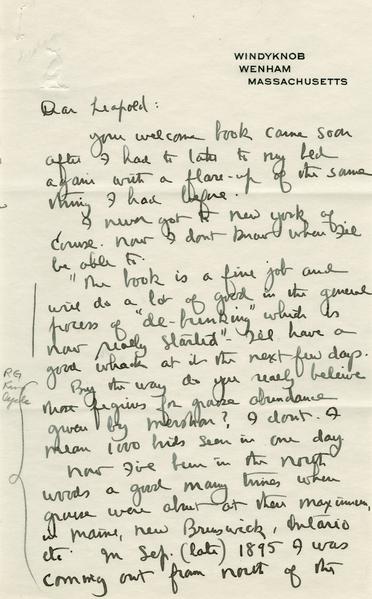 WINDYKNOB
WENHAM
MASSACHUSETTS
Dear Leopold:
your welcome book came soon
after I had to take to my bed
again with a flare-up of the same
thing I had before.
I never got to new york of
course. now I dont know when I'll
be able to.
"The book is a fine job and
will do a lot of good in the general
process of "de-bunking" which is
now really started" - I'll have a
good whack at it the next few days.
By the way do you really believe
those figures for grouse abundance
given by mershon? I dont. I
mean 1000 birds seen in one day
now I've been in the north
woods a good many times when
grouse were about at their maximum,
in maine, new Brunswick, Ontario
etc. In Sep. (late) 1895 I was
coming out from north of the
RG
King
Cycle